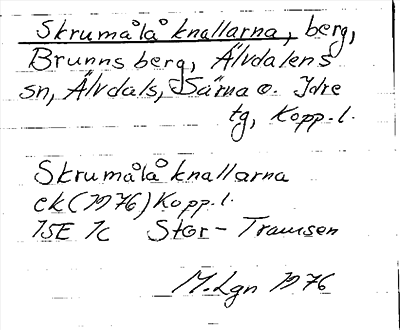 Skrumålåknallarna, berg,
Brunnsberg, Älvdalens
sn, Älvdals, Särna o. Idre
tg, Kopp. l.
Skrumålåknallarna
ek (1976) Kopp. l.
15E 1c Stor-Tramsen
M. Lgn 1976